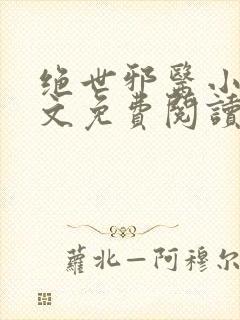 绝世邪醫小
文免費閱讀
蘿北—阿穆尔